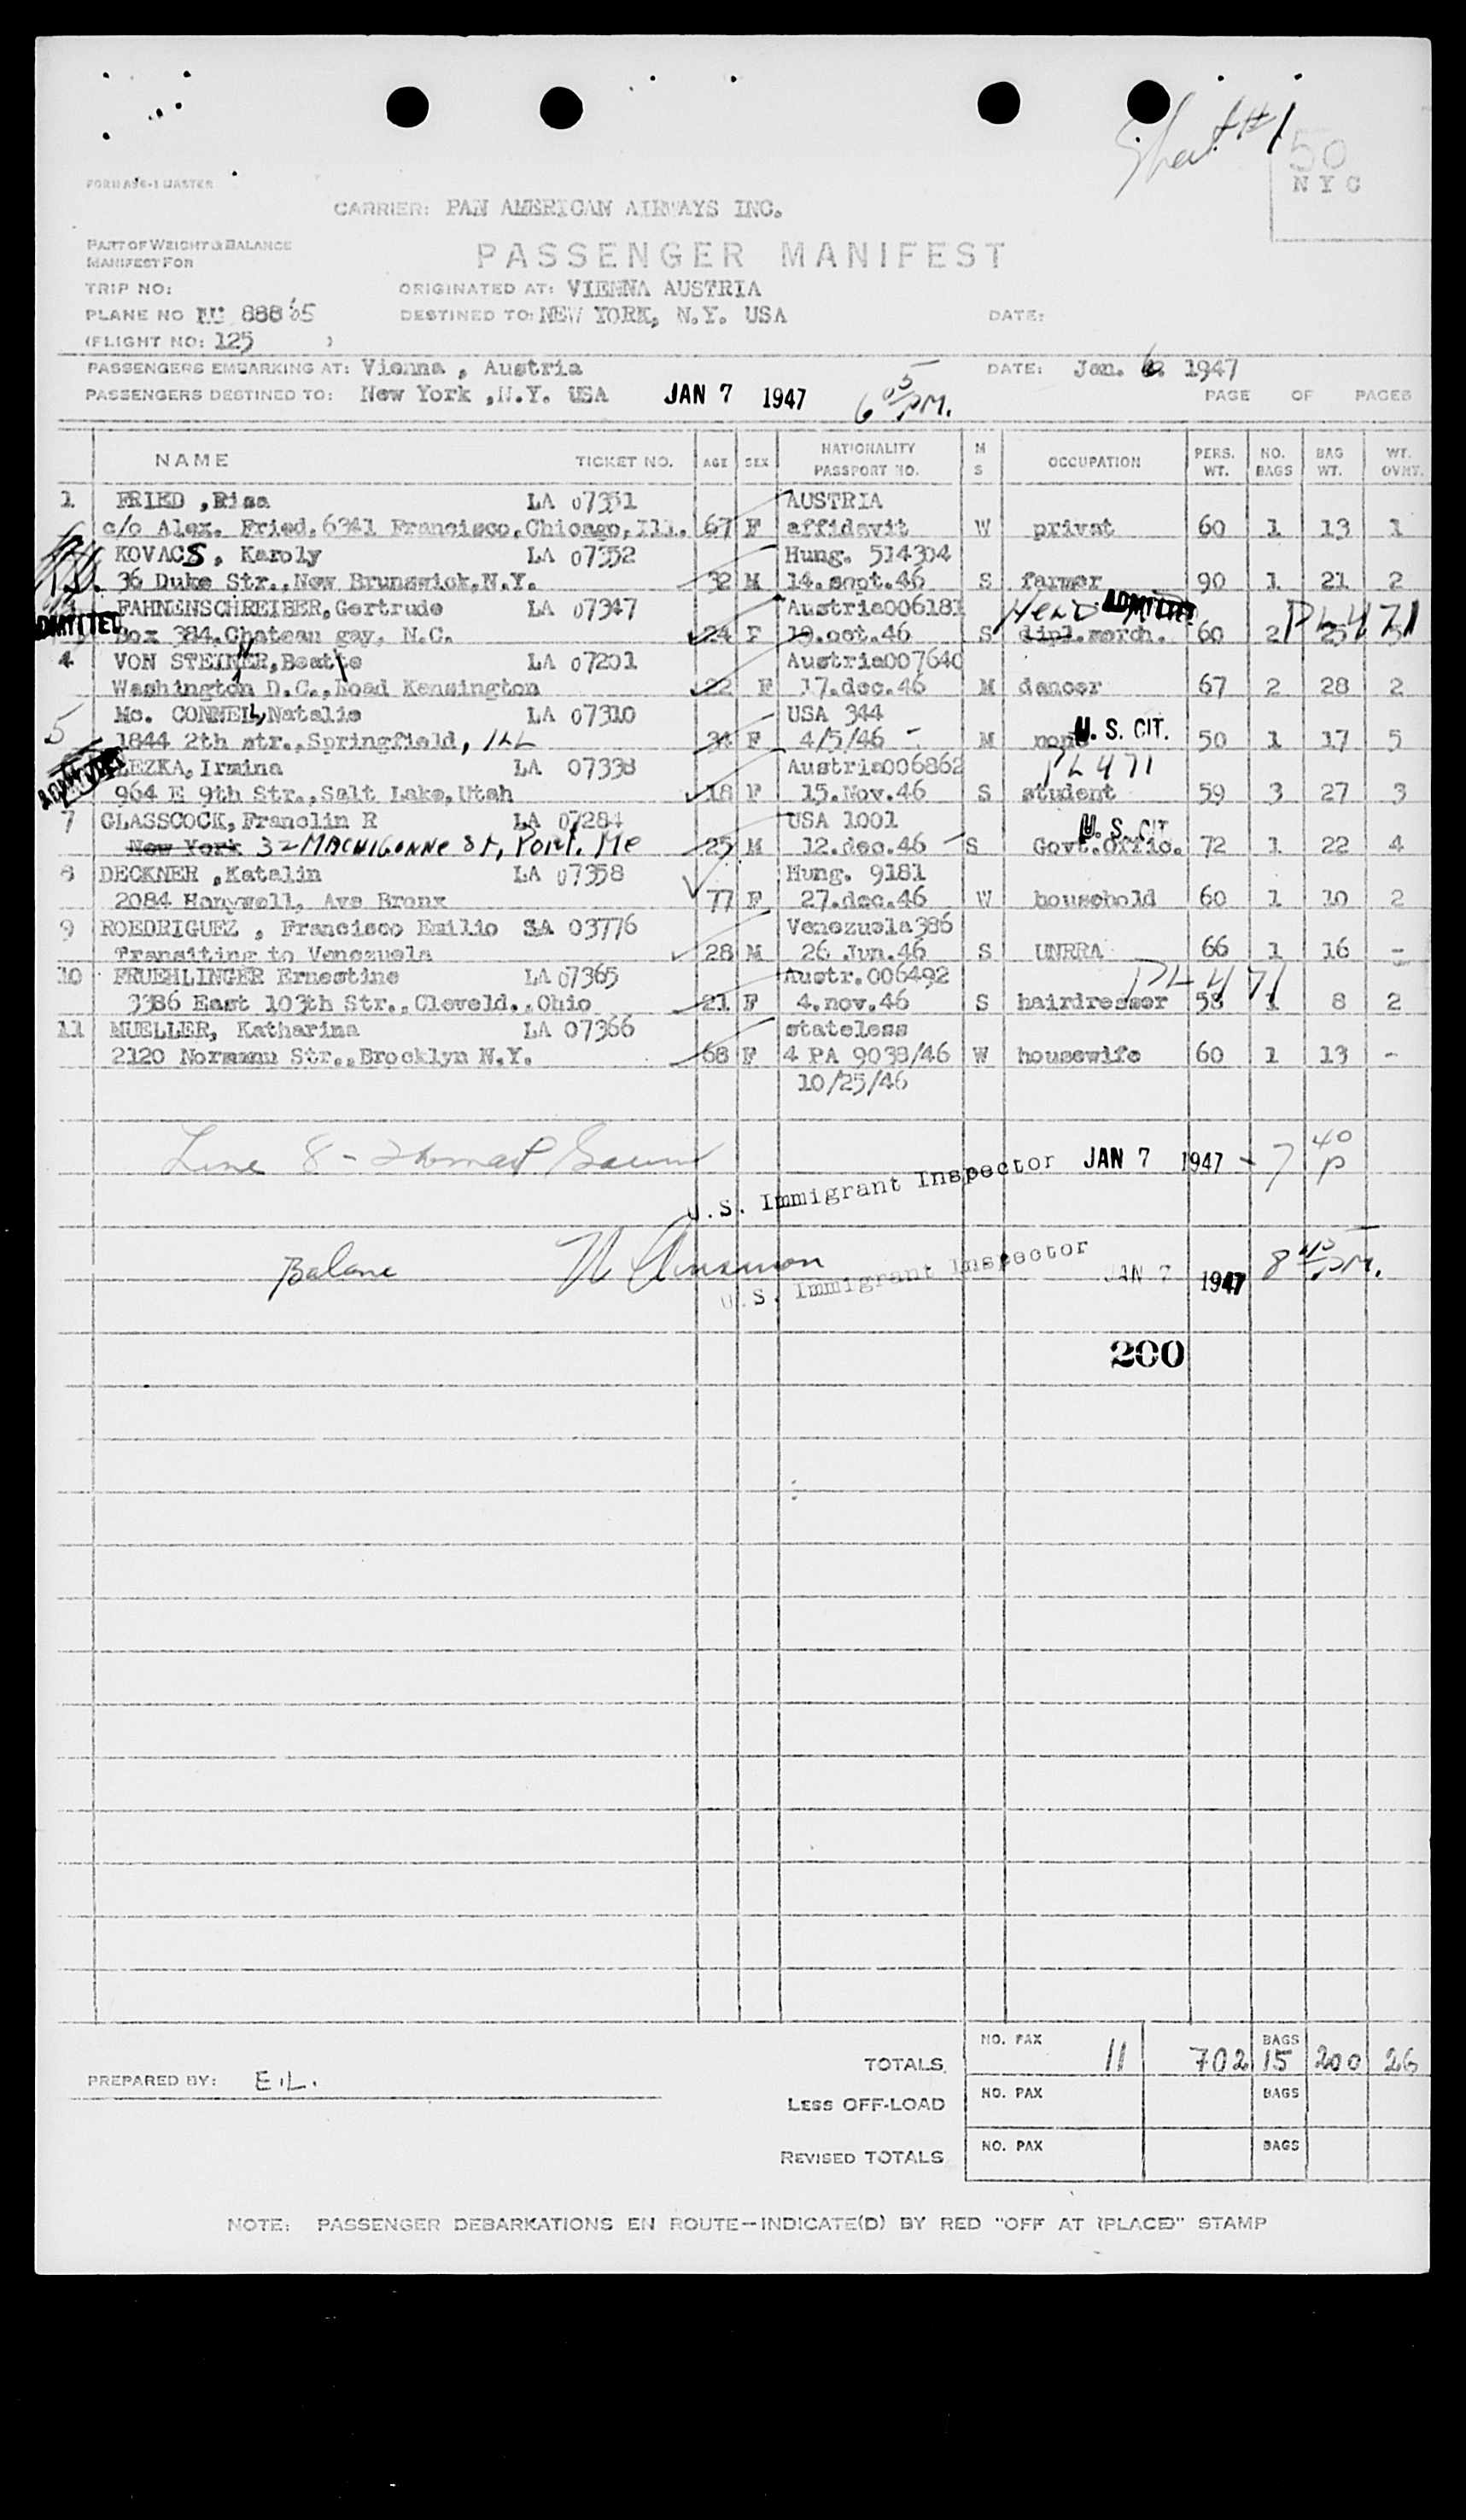 Sheet #1
50
NYC
FORM A96-1 MASTER
CARRIER: PAN AMERICAN AIRWAYS INC.
PART OF WEIGHT & BALANCE
MANIFEST FOR
PASSENGER MANIFEST
TRIP NO:
ORIGINATED AT: VIENNA AUSTRIA
PLANE NO NC 88865
DESTINED TO: NEW YORK, N.Y. USA
DATE:
(FLIGHT NO: 125 )
PASSENGERS EMBARKING AT: Vienna , Austria
DATE: Jan. 6. 1947
PASSENGERS DESTINED TO: New York ,N.Y. USA JAN 7 1947 6 05 PM.
PAGE OF PAGES
NAME TICKET NO. AGE SEX NATIONALITY PASSPORT NO. M S OCCUPATION PERS. WT. NO. BAGS BAG WT. WT. OVWT.
1 FRIED ,Risa LA 07351 AUSTRIA
c/o Alex. Fried, 6341 Francisco, Chicago, Ill. 67 F affidavit W privat 60 1 13 1
KOVACS, Karoly LA 07352 Hung. 514304
36 Duke Str., New Brunswick, N.Y. 32 M 14.sept.46 S farmer 90 1 21 2
FAHNENSCHREIBER, Gertrude LA 07347 Austria006181 HELD ADMITTED PL 471
ADMITTED Box 384, Chateau gay, N.C. 24 F 19.oct.46 S dipl.merch. 60 2 25 5
4 VON STEINER, Beatte LA 07201 Austria007640
Washington D.C., Road Kensington 22 F 17.dec.46 M dancer 67 2 28 2
5 Mc. CONNELL, Natalie LA 07310 USA 344
1844 2th str., Springfield, ILL 34 F 4/5/46 - M none U. S. CIT. 50 1 17 5
ADMITTED LEZKA, Irmina LA 07338 Austria006862 PL 471
964 E 9th Str., Salt Lake, Utah 18 F 15.Nov.46 S student 59 3 27 3
7 GLASSCOCK, Franclin R LA 07284 USA 1001 U. S. CIT.
New York 32 MACHIGONNE St, Port. Me 25 M 12.dec.46 S Govt.Offic. 72 1 22 4
8 DECKNER ,Katalin LA 07358 Hung. 9181
2084 Honywell, Ave Bronx 77 F 27.dec.46 W household 60 1 10 2
9 ROEDRIGUEZ , Francisco Emilio SA 03776 Venezuela386
Transiting to Venezuela 28 M 26 Jun.46 S UNRRA 66 1 16 -
10 FRUEHLINGER Ernestine LA 07365 Austr.006492 PL 471
3386 East 103th Str., Cleveld., Ohio 21 F 4.nov.46 S hairdresser 58 1 8 2
11 MUELLER, Katharina LA 07366 stateless
2120 Normann Str., Brocklyn N.Y. 68 F 4 PA 9038/46 W housewife 60 1 13 -
10/25/46
Line 8 -
U.S. Immigrant Inspector JAN 7 1947 - 7 40 P
Balance
U.S. Immigrant Inspector JAN 7 1947 8 45 PM.
200
NO. PAX BAGS
TOTALS 11 702 15 200 26
PREPARED BY: E.L.
LESS OFF-LOAD NO. PAX BAGS
REVISED TOTALS NO. PAX BAGS
NOTE: PASSENGER DEBARKATIONS EN ROUTE—INDICATE(D) BY RED "OFF AT (PLACE)" STAMP